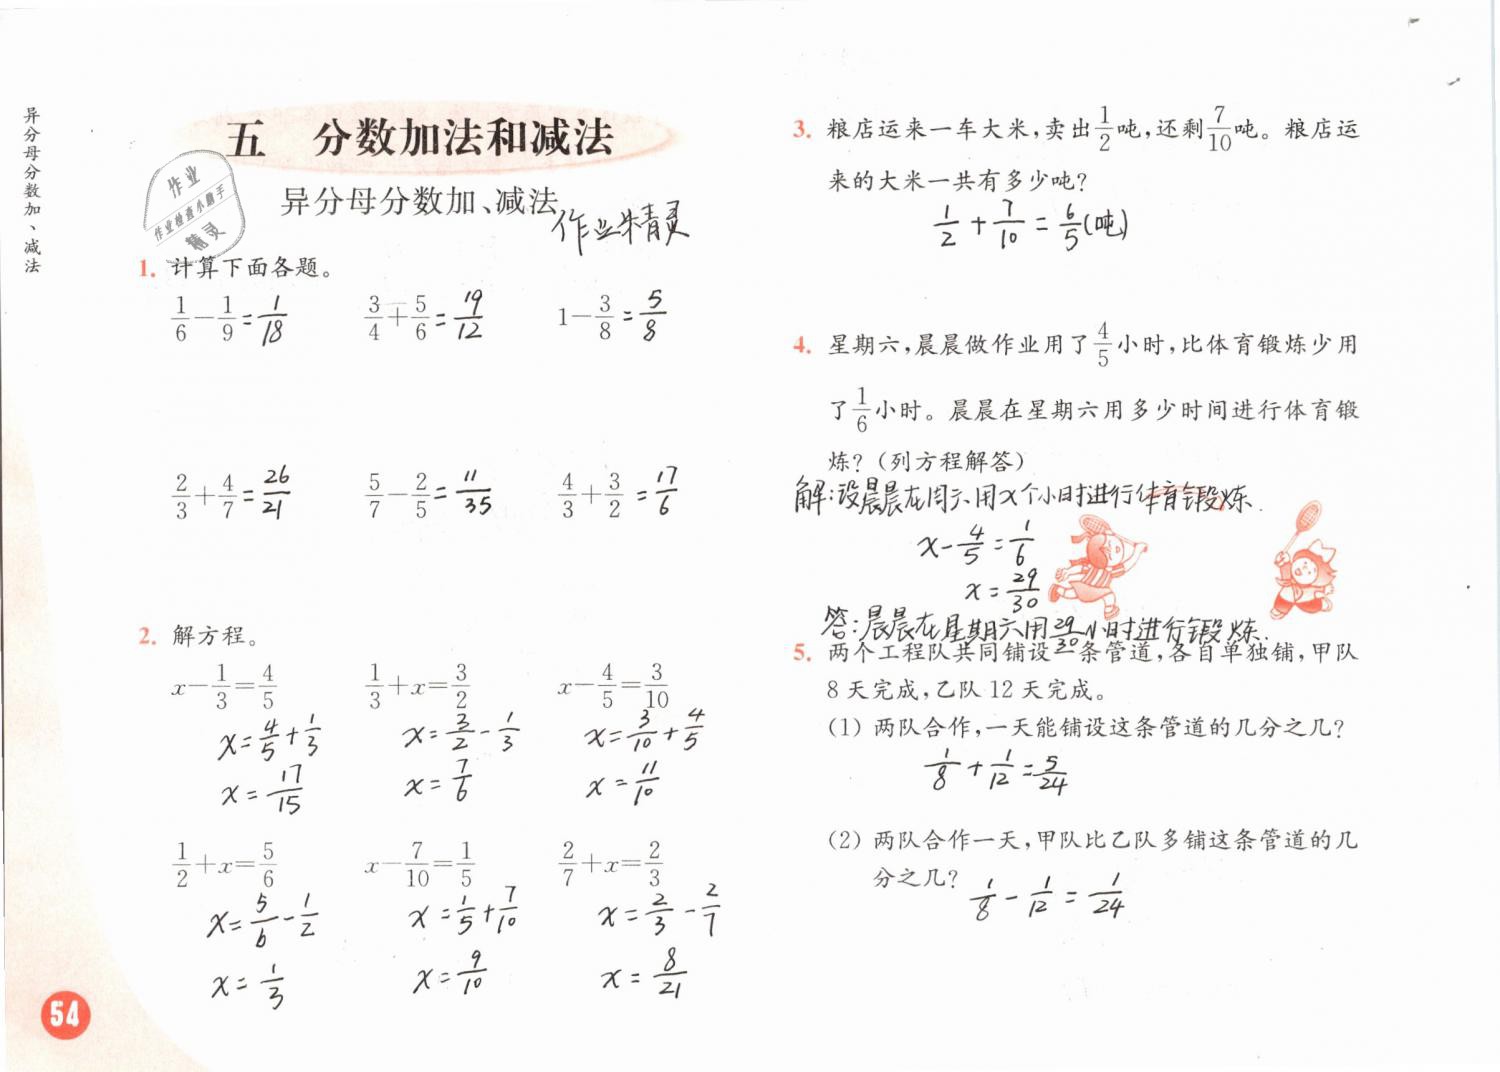 异分母分数加、减法
五 分数加法和减法
异分母分数加、减法
作业精灵
作业
作业检查小助手
精灵
1. 计算下面各题。
1/6-1/9=1/18 3/4+5/6=19/12 1-3/8=5/8
2/3+4/7=26/21 5/7-2/5=11/35 4/3+3/2=17/6
2. 解方程。
x-1/3=4/5 1/3+x=3/2 x-4/5=3/10
x=4/5+1/3 x=3/2-1/3 x=3/10+4/5
x=17/15 x=7/6 x=11/10
1/2+x=5/6 x-7/10=1/5 2/7+x=2/3
x=5/6-1/2 x=1/5+7/10 x=2/3-2/7
x=1/3 x=9/10 x=8/21
54
3. 粮店运来一车大米,卖出1/2吨,还剩7/10吨。粮店运
来的大米一共有多少吨?
1/2+7/10=6/5(吨)
4. 星期六,晨晨做作业用了4/5小时,比体育锻炼少用
了1/6小时。晨晨在星期六用多少时间进行体育锻
炼?(列方程解答)
解:设晨晨在周六用x个小时进行体育锻炼.
x-4/5=1/6
x=29/30
答:晨晨在星期六用29/30小时进行锻炼.
5. 两个工程队共同铺设一条管道,各自单独铺,甲队
8天完成,乙队12天完成。
(1) 两队合作,一天能铺设这条管道的几分之几?
1/8+1/12=5/24
(2) 两队合作一天,甲队比乙队多铺这条管道的几
分之几?
1/8-1/12=1/24